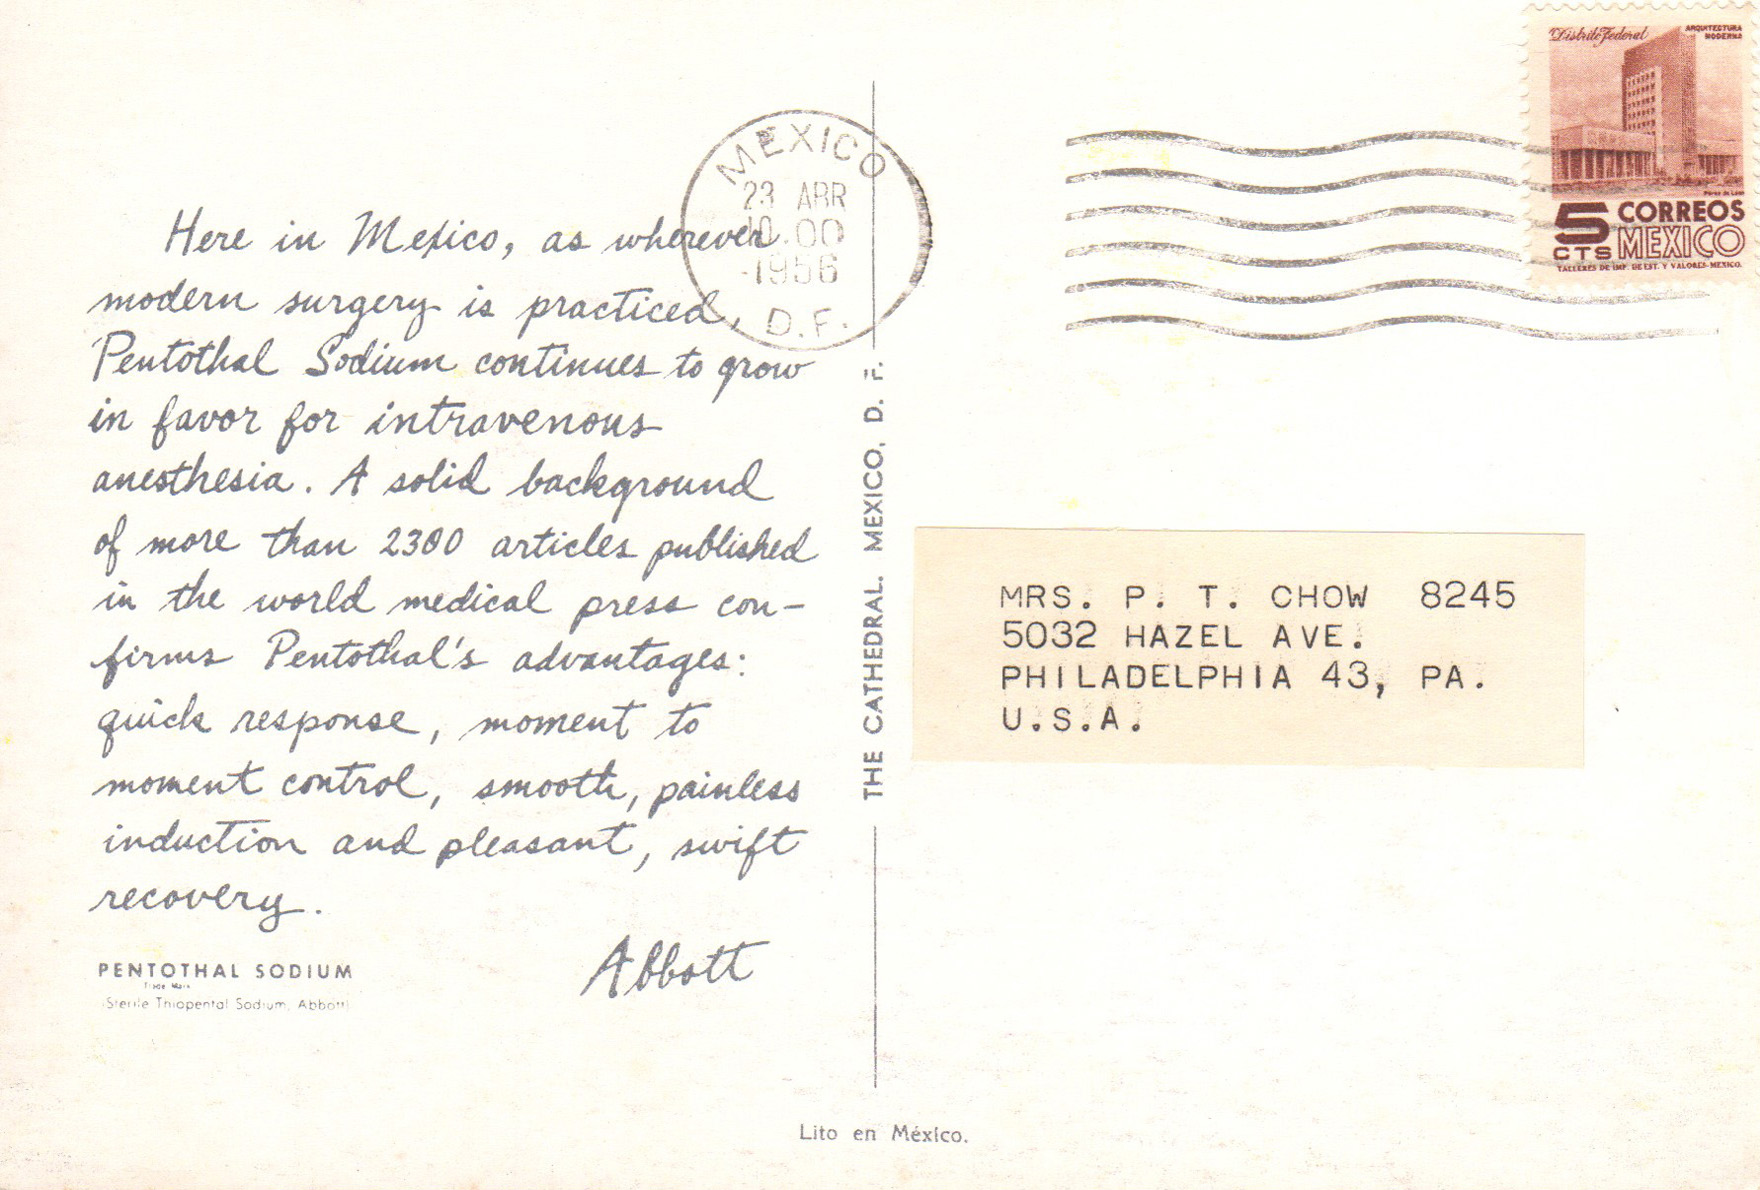 Here in Mexico, as wherever
modern surgery is practiced,
Pentothal Sodium continues to grow
in favor for intravenous
anesthesia. A solid background
of more than 2300 articles published
in the world medical press con-
firms Pentothal's advantages:
quick response, moment to
moment control, smooth, painless
induction and pleasant, swift
recovery.
Abbott
PENTOTHAL SODIUM
Trade Mark
(Sterile Thiopental Sodium, Abbott)
THE CATHEDRAL. MEXICO, D. F.
Lito en México.
MEXICO
23 ABR
10.00
1956
D.F.
Distrito Federal
ARQUITECTURA
MODERNA
5 CTS
CORREOS
MEXICO
TALLERES DE IMP. DE EST. Y VALORES-MEXICO.
MRS. P. T. CHOW 8245
5032 HAZEL AVE.
PHILADELPHIA 43, PA.
U.S.A.